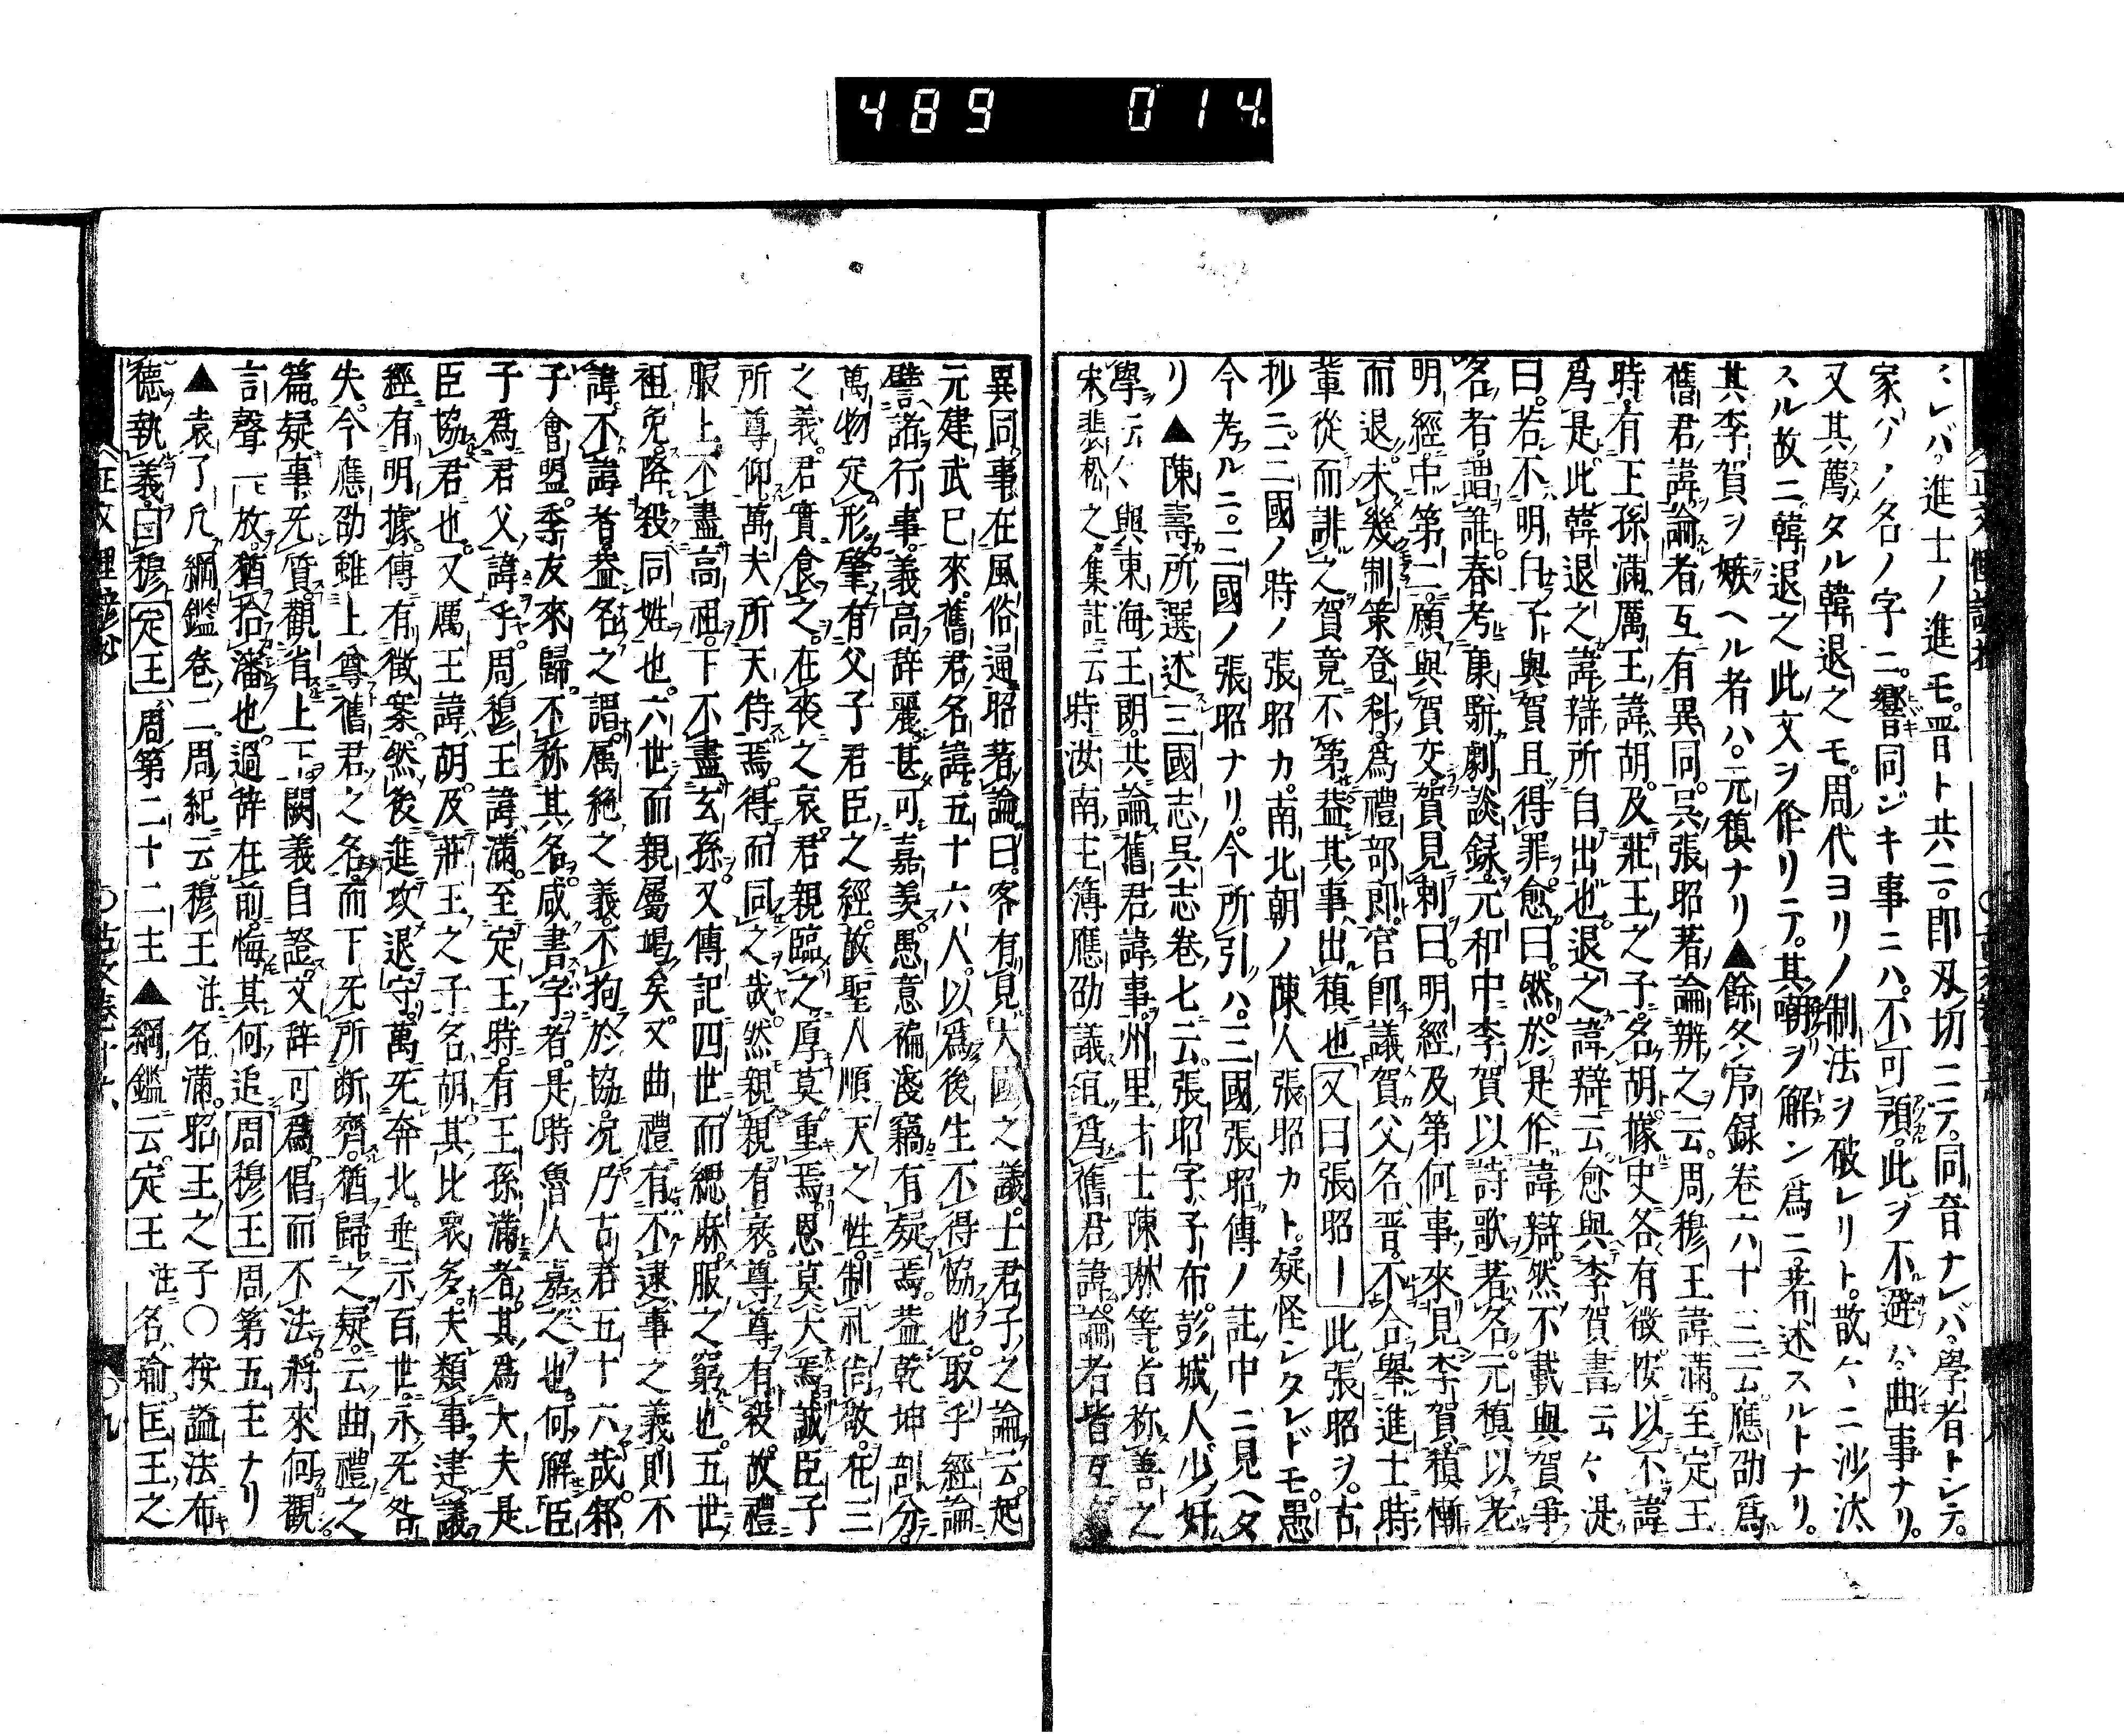 489 014
ミレバ進士ノ進モ晋ト共ニ即刄切ニテ同音ナレバ學者トシテ
家〻ノ名ノ字ニ響同ジキ事ニハ不可預此ヲ不避ハ曲事ナリ
又其薦タル韓退之モ周代ヨリノ制法ヲ破レリト散〻ニ沙汰
スル故ニ韓退之此文ヲ作リテ其嘲ヲ解ン爲ニ若述スルトナリ
其李賀ヲ嫉ヘル者ハ元稹ナリ▲餘冬序録卷六十三云應劭爲
舊君諱論者互有異同呉張昭著論辨之云周穆王諱滿至定王
時有王孫滿厲王諱胡及莊王之子名胡據史各有徴按以不諱
爲是此韓退之諱辯所自出也退之諱辯云愈與李賀書云〻湜
曰若不明白子與賀且得罪愈曰然於是作諱辯然不載與賀爭
名者謂誰春考康駢劇談録元和中李賀以詩歌著名元稹以老
明經中第二願與賀交賀見刺曰明經及第何事來見李賀稹慚
而退未幾制策登科爲禮部郎官卽議賀父名晋不合舉進士時
輩從而誹之賀竟不第葢其事出稹也又曰張昭ー此張昭ヲ古
抄ニ三國ノ時ノ張昭カ南北朝ノ陳人張昭カト疑怪シタレドモ愚
今考ルニ三國ノ張昭ナリ今所引ハ三國張昭傳ノ註中ニ見ヘタ
リ▲陳壽所選述三國志呉志卷七云張昭字子布彭城人少好
學云〻與東海王朗共論舊君諱事州里才士陳琳等皆称善之
宋裴松之集註云時汝南主簿應劭議宜爲舊君諱論者皆互有
異同事在風俗通昭著論曰客有見大國之議士君子之論云起
元建武已來舊君名諱五十六人以爲後生不得協也取乎經論
譬諸行事義高辞麗甚可嘉羡愚意褊淺竊有疑焉葢乾坤剖分
萬物定形肇有父子君臣之經故聖人順天之性制礼尚敬在三
之義君實食之在喪之哀君親臨之厚莫重焉恩莫大焉誠臣子
所尊仰萬夫所天恃焉得而同之哉然親親有衰尊尊有殺故禮
服上不盡高祖下不盡玄孫又傳記四世而緦麻服之窮也五世
袒免降殺同姓也六世而親屬竭矣又曲禮有不逮事之義則不
諱不諱者葢名之謂属絶之義不拘於協况乃古君五十六哉邾
子會盟季友來歸不称其名咸書字者是時魯人嘉之也何解臣
子爲君父諱乎周穆王諱滿至定王時有王孫滿者其爲大夫是
臣協君也又厲王諱胡及莊王之子名胡其比衆多夫類事建議
經有明據傳有徴案然後進攻退守萬无奔北垂示百世永无咎
失今應劭雖上尊舊君之名而下无所断齊猶歸之疑云曲禮之
篇疑事无質觀省上下闕義自證文辞可爲倡而不法將來何觀
言聲一放猶拾瀋也過辞在前悔其何追周穆王周第五主ナリ
▲袁了凡綱鑑卷二周紀云穆王注名滿昭王之子○按謚法布
德執義曰穆定王周第二十二主▲綱鑑云定王注名瑜匡王之